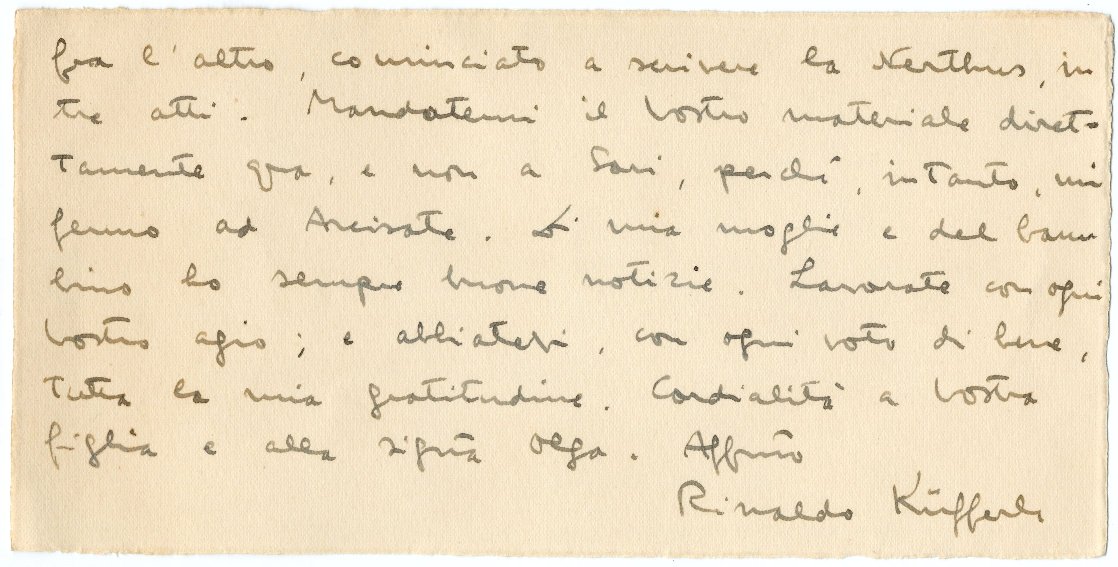 fra l'altro, cominciato a scrivere la Nerthus, in
tre atti. Mandatemi il Vostro materiale diret-
tamente qua, e non a Sori, perché, intanto, mi
fermo ad Arcisate. Di mia moglie e del bam
bino ho sempre buone notizie. Lavorate con ogni
Vostro agio; e abbiatevi, con ogni voto di bene,
tutta la mia gratitudine. Cordialità a Vostra
figlia e alla sigra Olga. Affmo
Rinaldo Küfferle